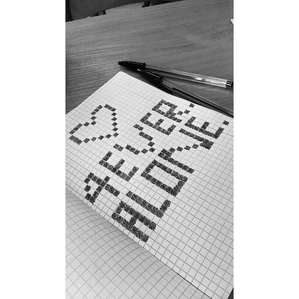 4EVER
ALONE.